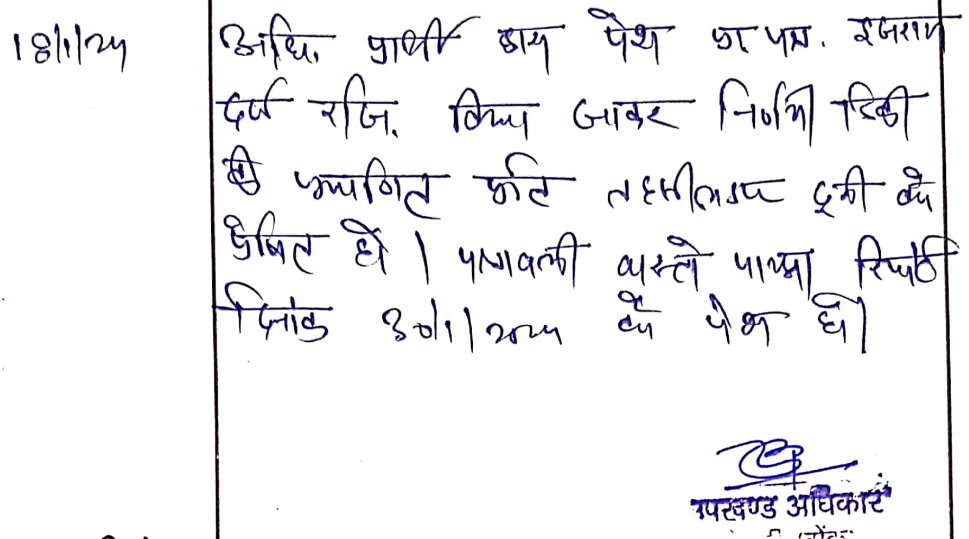 18/1/24
अधि. प्रार्थी द्वारा पेश प्रा पत्र. इजराय
दर्ज रजि. किया जाकर निर्णय डिक्री
की प्रमाणित प्रति तहसीलदार दूनी को
प्रेषित हो। पत्रावली वास्ते पालना रिपोर्ट
दिनांक 30/1/2024 को पेश हो।
उपखण्ड अधिकारी